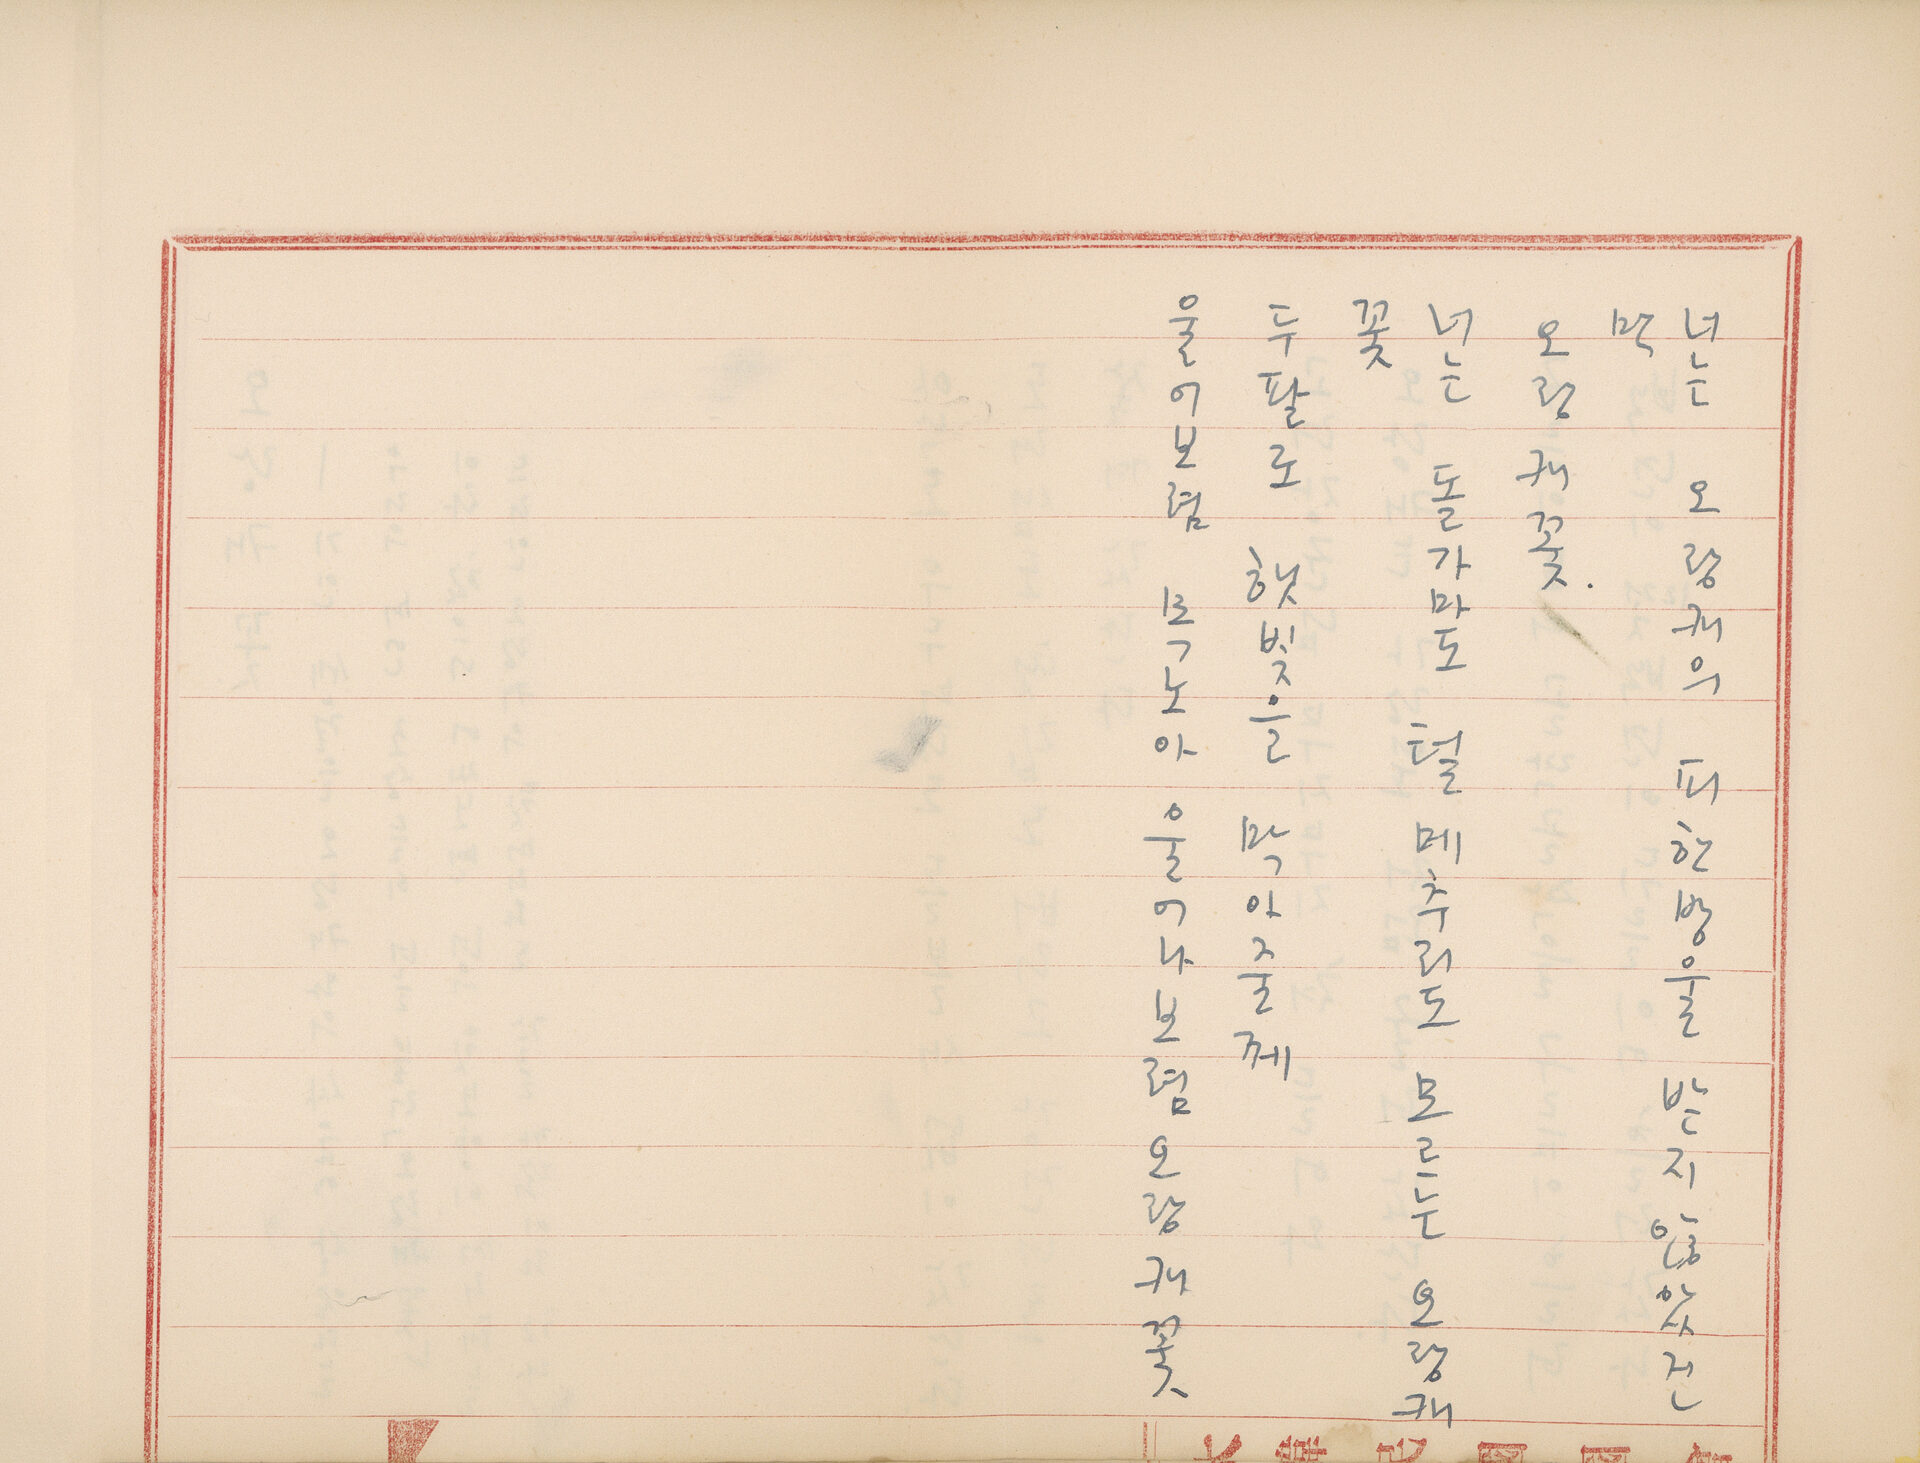 너는 오랑캐의 피 한방울 받지 않았건
만
오랑캐꽃.
너는 돌가마도 털 메추리도 모르는 오랑캐
꽃
두팔로 햇빛을 막아줄께
울어보렴 목노아 울어나보렴 오랑캐꽃